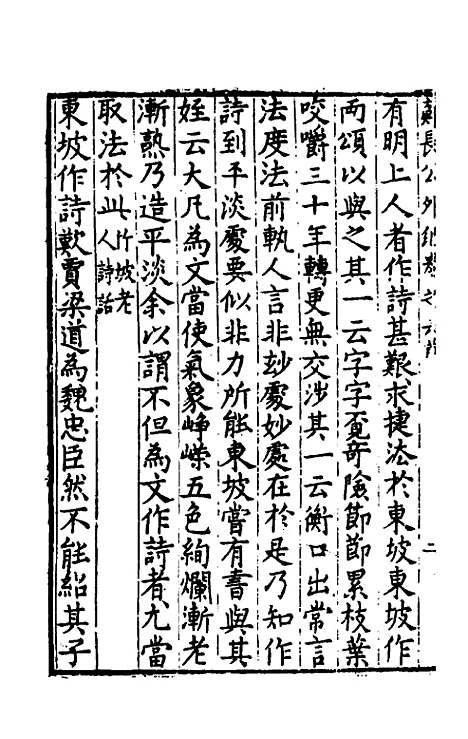 蘇長公外紀卷之六 二
有明上人者作詩甚艱求捷法於東坡東坡作
兩頌以與之其一云字字覔竒險節節累枝葉
咬嚼三十年轉更無交涉其一云衡口出常言
法度法前軌人言非玅處妙處在於是乃知作
詩到平淡處要似非力所能東坡嘗有書與其
姪云大凡為文當使氣象崢嶸五色絢爛漸老
漸熟乃造平淡余以謂不但為文作詩者尤當
取法於此竹坡老人詩話
東坡作詩歎賈梁道為魏忠臣然不能紹其子